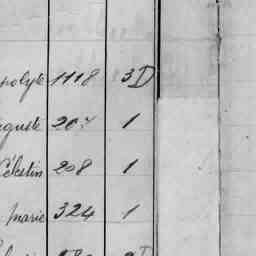 polyte 1118 3D
guste 207 1
Célestin 208 1
Marie 324 1